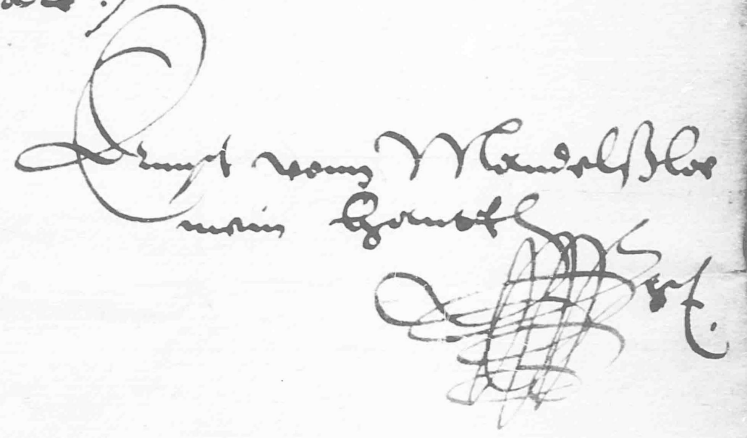 Ernst vonn Mandelßloe
mein handt